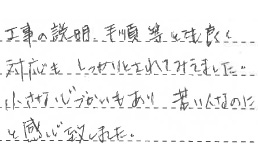 工事の説明、手順等とても良く
対応も しっかりとされてみえました。
小さな心づかいもあり 若い人なのに
と感じ致しました。